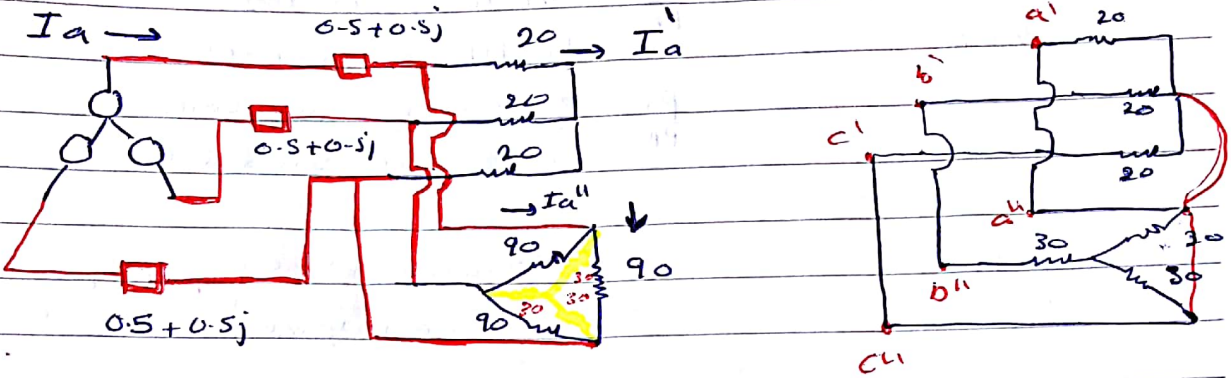 Ia → 0.5+0.5j 20 → Ia'
20
0.5+0.5j 20
→ Ia"
90 90
30 30
30
90
0.5+0.5j
a' 20
b' 20
c' 20
a"
30 30
30
b"
c"